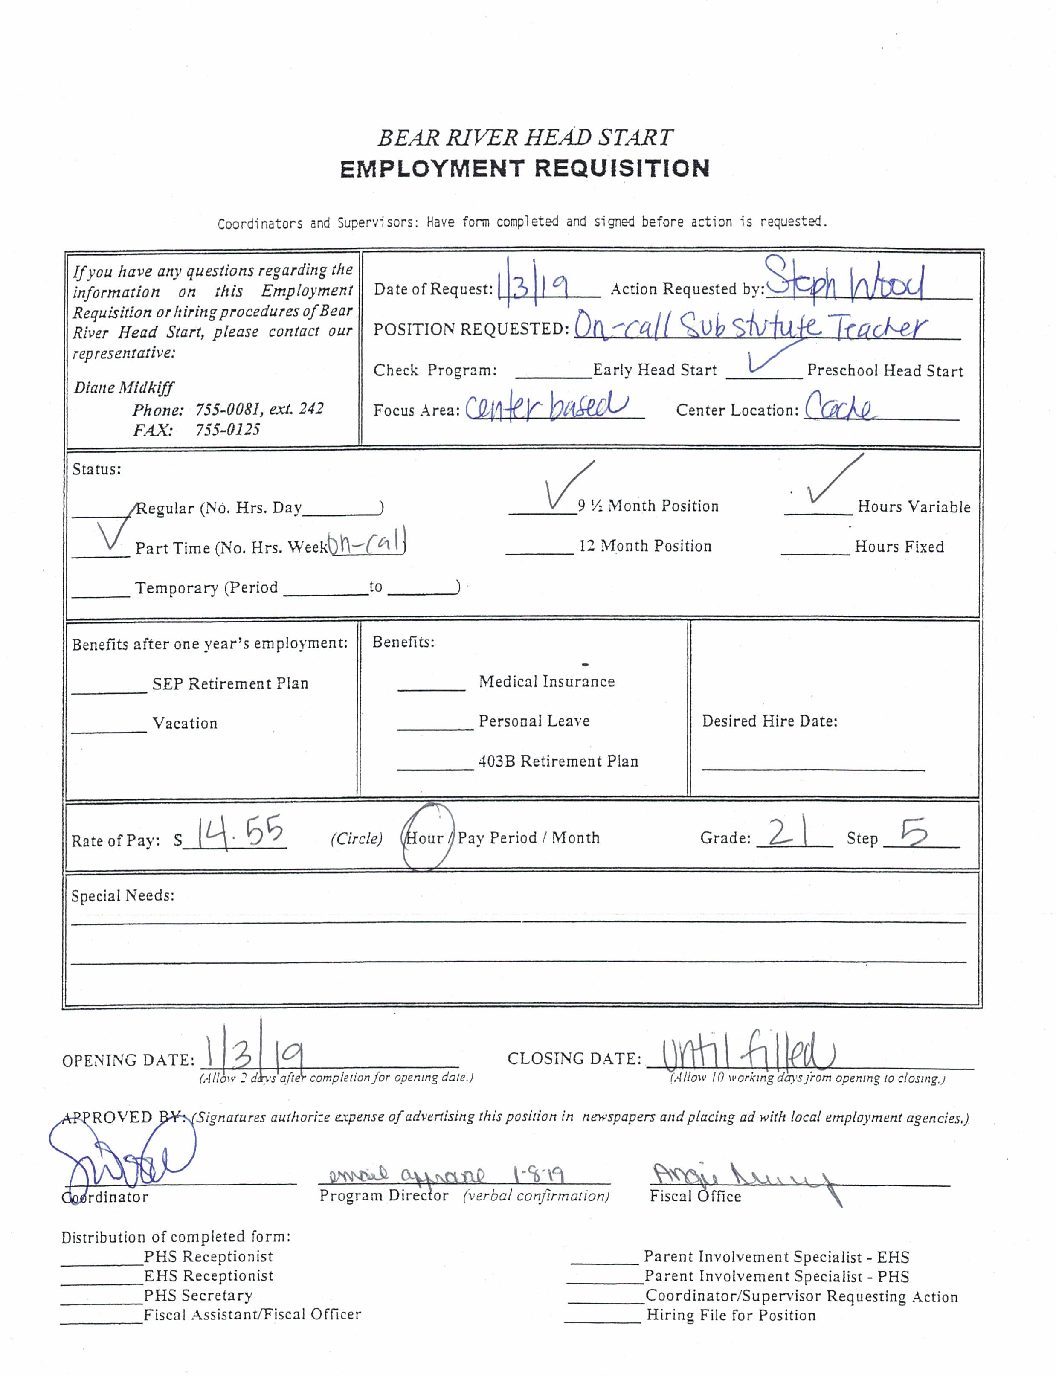 BEAR RIVER HEAD START
EMPLOYMENT REQUISITION
Coordinators and Supervisors: Have form completed and signed before action is requested.
If you have any questions regarding the
information on this Employment
Requisition or hiring procedures of Bear
River Head Start, please contact our
representative:
Diane Midkiff
Phone: 755-0081, ext. 242
FAX: 755-0125
Date of Request: 1/3/19 Action Requested by: Steph Wood
POSITION REQUESTED: On-call Substitute Teacher
Check Program: ______ Early Head Start ✓ Preschool Head Start
Focus Area: Center based Center Location: Cache
Status:
______ Regular (No. Hrs. Day______) ✓ 9 ½ Month Position ✓ Hours Variable
✓ Part Time (No. Hrs. Week On-call) ______ 12 Month Position ______ Hours Fixed
______ Temporary (Period ______ to ______)
Benefits after one year's employment:
______ SEP Retirement Plan
______ Vacation
Benefits:
______ Medical Insurance
______ Personal Leave
______ 403B Retirement Plan
Desired Hire Date:
Rate of Pay: $ 14.55 (Circle) Hour / Pay Period / Month Grade: 21 Step 5
Special Needs:
OPENING DATE: 1/3/19 CLOSING DATE: Until filled
(Allow 2 days after completion for opening date.) (Allow 10 working days from opening to closing.)
APPROVED BY: (Signatures authorize expense of advertising this position in newspapers and placing ad with local employment agencies.)
email 1-8-19 Angie
Coordinator Program Director (verbal confirmation) Fiscal Office
Distribution of completed form:
______ PHS Receptionist ______ Parent Involvement Specialist - EHS
______ EHS Receptionist ______ Parent Involvement Specialist - PHS
______ PHS Secretary ______ Coordinator/Supervisor Requesting Action
______ Fiscal Assistant/Fiscal Officer ______ Hiring File for Position